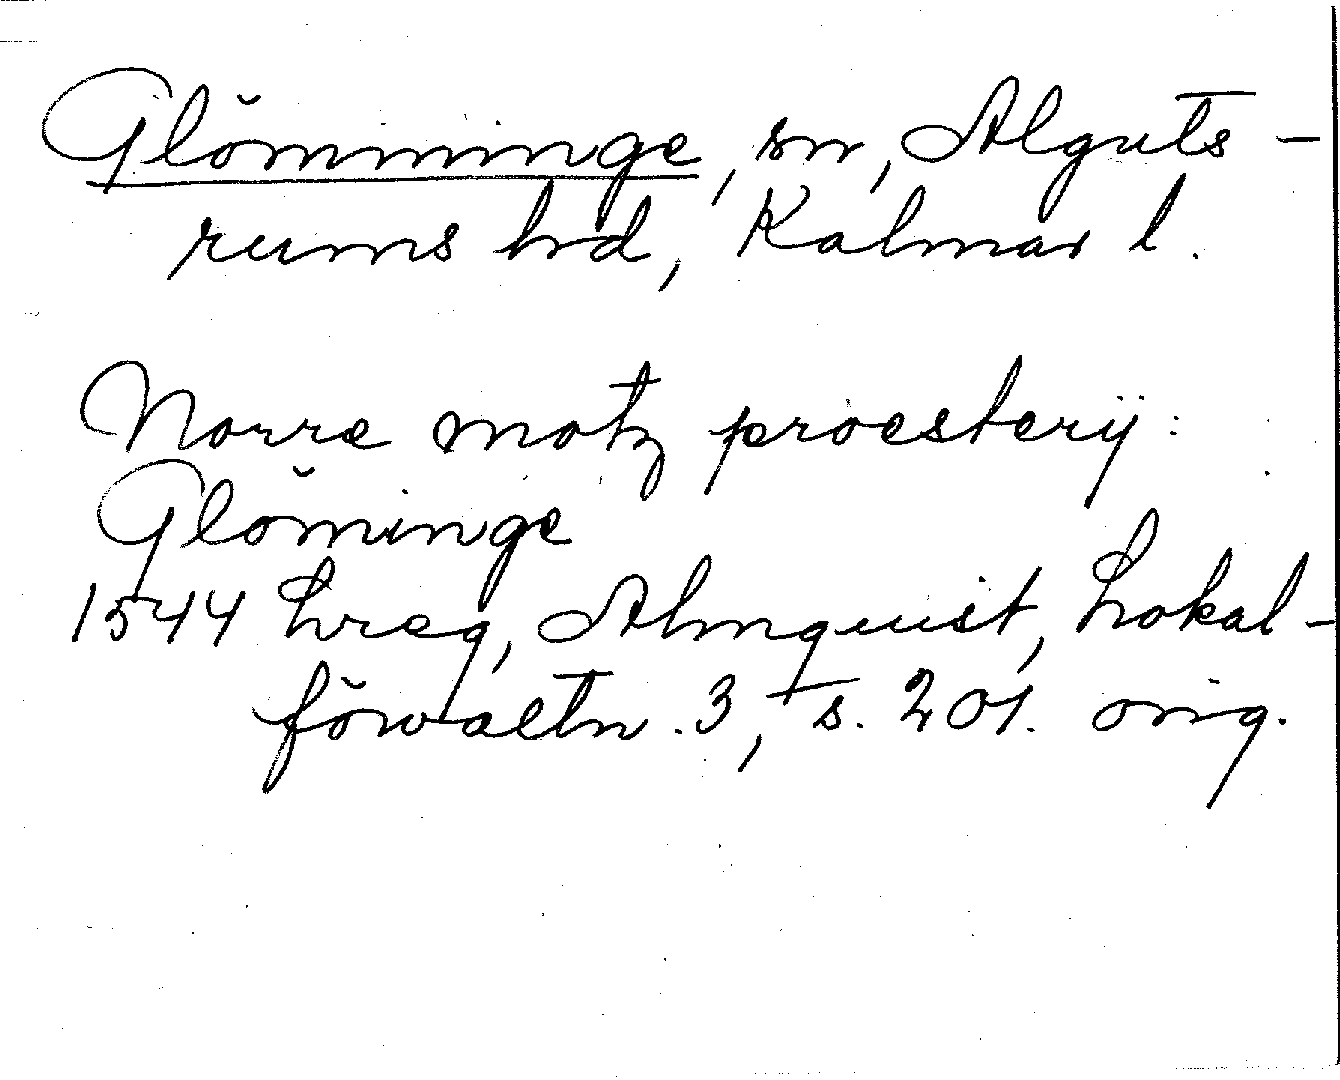 Glömminge, sn, Alguts-
rums hd, Kalmar l.
Norre motz proesterij:
Glöminge
1544 Lreg, Almquist, Lokal-
förvaltn. 3, s. 201. orig.